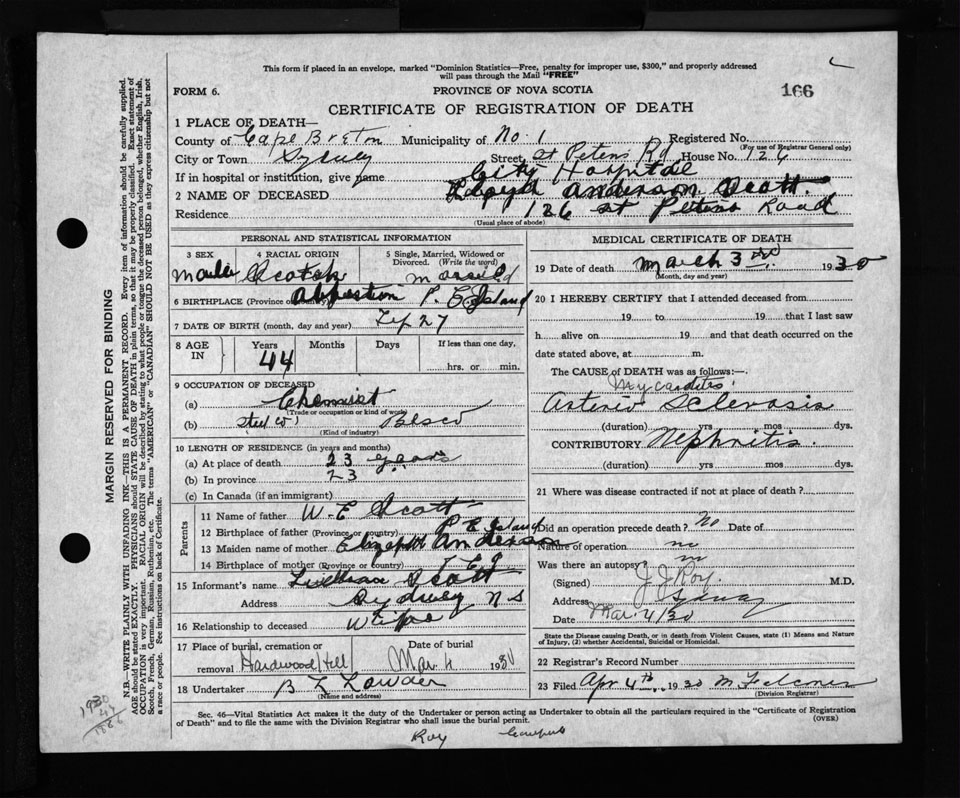 This form if placed in an envelope, marked "Dominion Statistics—Free, penalty for improper use, $300," and properly addressed
will pass through the Mail "FREE"
FORM 6.
PROVINCE OF NOVA SCOTIA
166
CERTIFICATE OF REGISTRATION OF DEATH
1 PLACE OF DEATH—
County of Cape Breton Municipality of No. 1 Registered No.
(For use of Registrar General only)
City or Town Sydney Street St Peters Rd House No. 126
If in hospital or institution, give name City Hospital
2 NAME OF DECEASED Lloyd Anderson Scott.
Residence 126 St Peters Road
(Usual place of abode)
PERSONAL AND STATISTICAL INFORMATION
3 SEX 4 RACIAL ORIGIN 5 Single, Married, Widowed or Divorced. (Write the word)
Scotch
6 BIRTHPLACE (Province or country) P. E. Island
7 DATE OF BIRTH (month, day and year) 27
8 AGE IN Years Months Days If less than one day,
44 hrs. or min.
9 OCCUPATION OF DECEASED
(a) Chemist
(Trade or occupation or kind of work)
(b) Steel Co Besco
(Kind of industry)
10 LENGTH OF RESIDENCE (in years and months)
(a) At place of death 23 years
(b) In province 23
(c) In Canada (if an immigrant)
Parents
11 Name of father W. E Scott
12 Birthplace of father (Province or country) P E Island
13 Maiden name of mother Anderson
14 Birthplace of mother (Province or country)
15 Informant's name Scott
Address Sydney N S
16 Relationship to deceased Wife
17 Place of burial, cremation or removal Hardwood Hill Date of burial Mar 4 1930
18 Undertaker
(Name and address)
MEDICAL CERTIFICATE OF DEATH
19 Date of death March 3rd 1930
(Month, day and year)
20 I HEREBY CERTIFY that I attended deceased from
19 to 19 that I last saw
h alive on 19 and that death occurred on the
date stated above, at m.
The CAUSE OF DEATH was as follows:—
Myocarditis
Arterio Sclerosis
(duration) yrs mos dys.
CONTRIBUTORY Nephritis.
(duration) yrs mos dys.
21 Where was disease contracted if not at place of death?
Did an operation precede death? No Date of
Nature of operation
Was there an autopsy?
(Signed) J J Roy M.D.
Address Sydney
Date Mar. 4/30
State the Disease causing Death, or in death from Violent Causes, state (1) Means and Nature
of Injury, (2) whether Accidental, Suicidal or Homicidal.
22 Registrar's Record Number
23 Filed Apr 4th 1930
(Division Registrar)
Sec. 46—Vital Statistics Act makes it the duty of the Undertaker or person acting as Undertaker to obtain all the particulars required in the "Certificate of Registration
of Death" and to file the same with the Division Registrar who shall issue the burial permit.
(OVER)
Roy
MARGIN RESERVED FOR BINDING
N.B.—WRITE PLAINLY WITH UNFADING INK—THIS IS A PERMANENT RECORD. Every item of information should be carefully supplied.
AGE should be stated EXACTLY. PHYSICIANS should STATE CAUSE OF DEATH in plain terms, so that it may be properly classified. Exact statement of
OCCUPATION is very important. RACIAL ORIGIN will be described by stating to what people or tongue the deceased person belonged, whether English, Irish,
Scotch, French, German, Russian, Ruthenian, etc. The terms "AMERICAN" or "CANADIAN" SHOULD NOT BE USED as they express citizenship but not
a race or people. See instructions on back of Certificate.
1930
44
1886